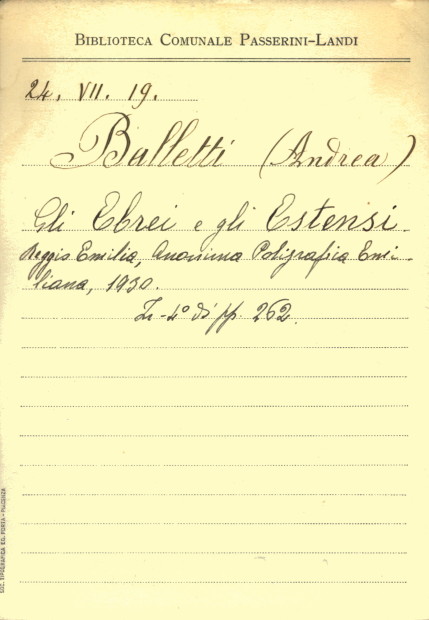 BIBLIOTECA COMUNALE PASSERINI-LANDI
24. VII. 19.
Balletti (Andrea)
Gli Ebrei e gli Estensi.
Reggio Emilia, Anonima Poligrafica Emi-
liana, 1930.
In-4° di pp. 262.
SOC. TIPOGRAFICA ED. PORTA - PIACENZA